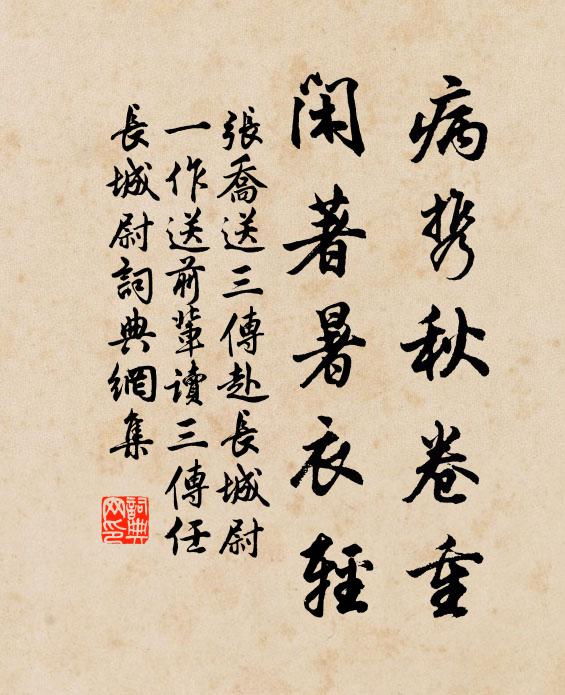 病携秋卷重
閑著暑衣輕
張喬送三傳赴長城尉
一作送前輩讀三傳任
長城尉詞典網集
詞典网印